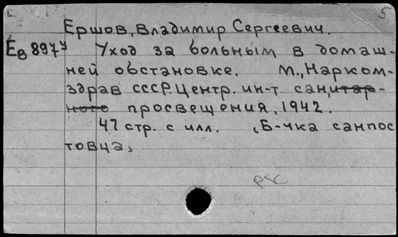 Ершов, Владимир Сергеевич.
Ев 897у Уход за больным в домаш-
ней обстановке. М., Нарком-
здрав СССР. Центр. ин-т санитар-
ного просвещения, 1942.
47 стр. с илл. (Б-чка санпос
товца)